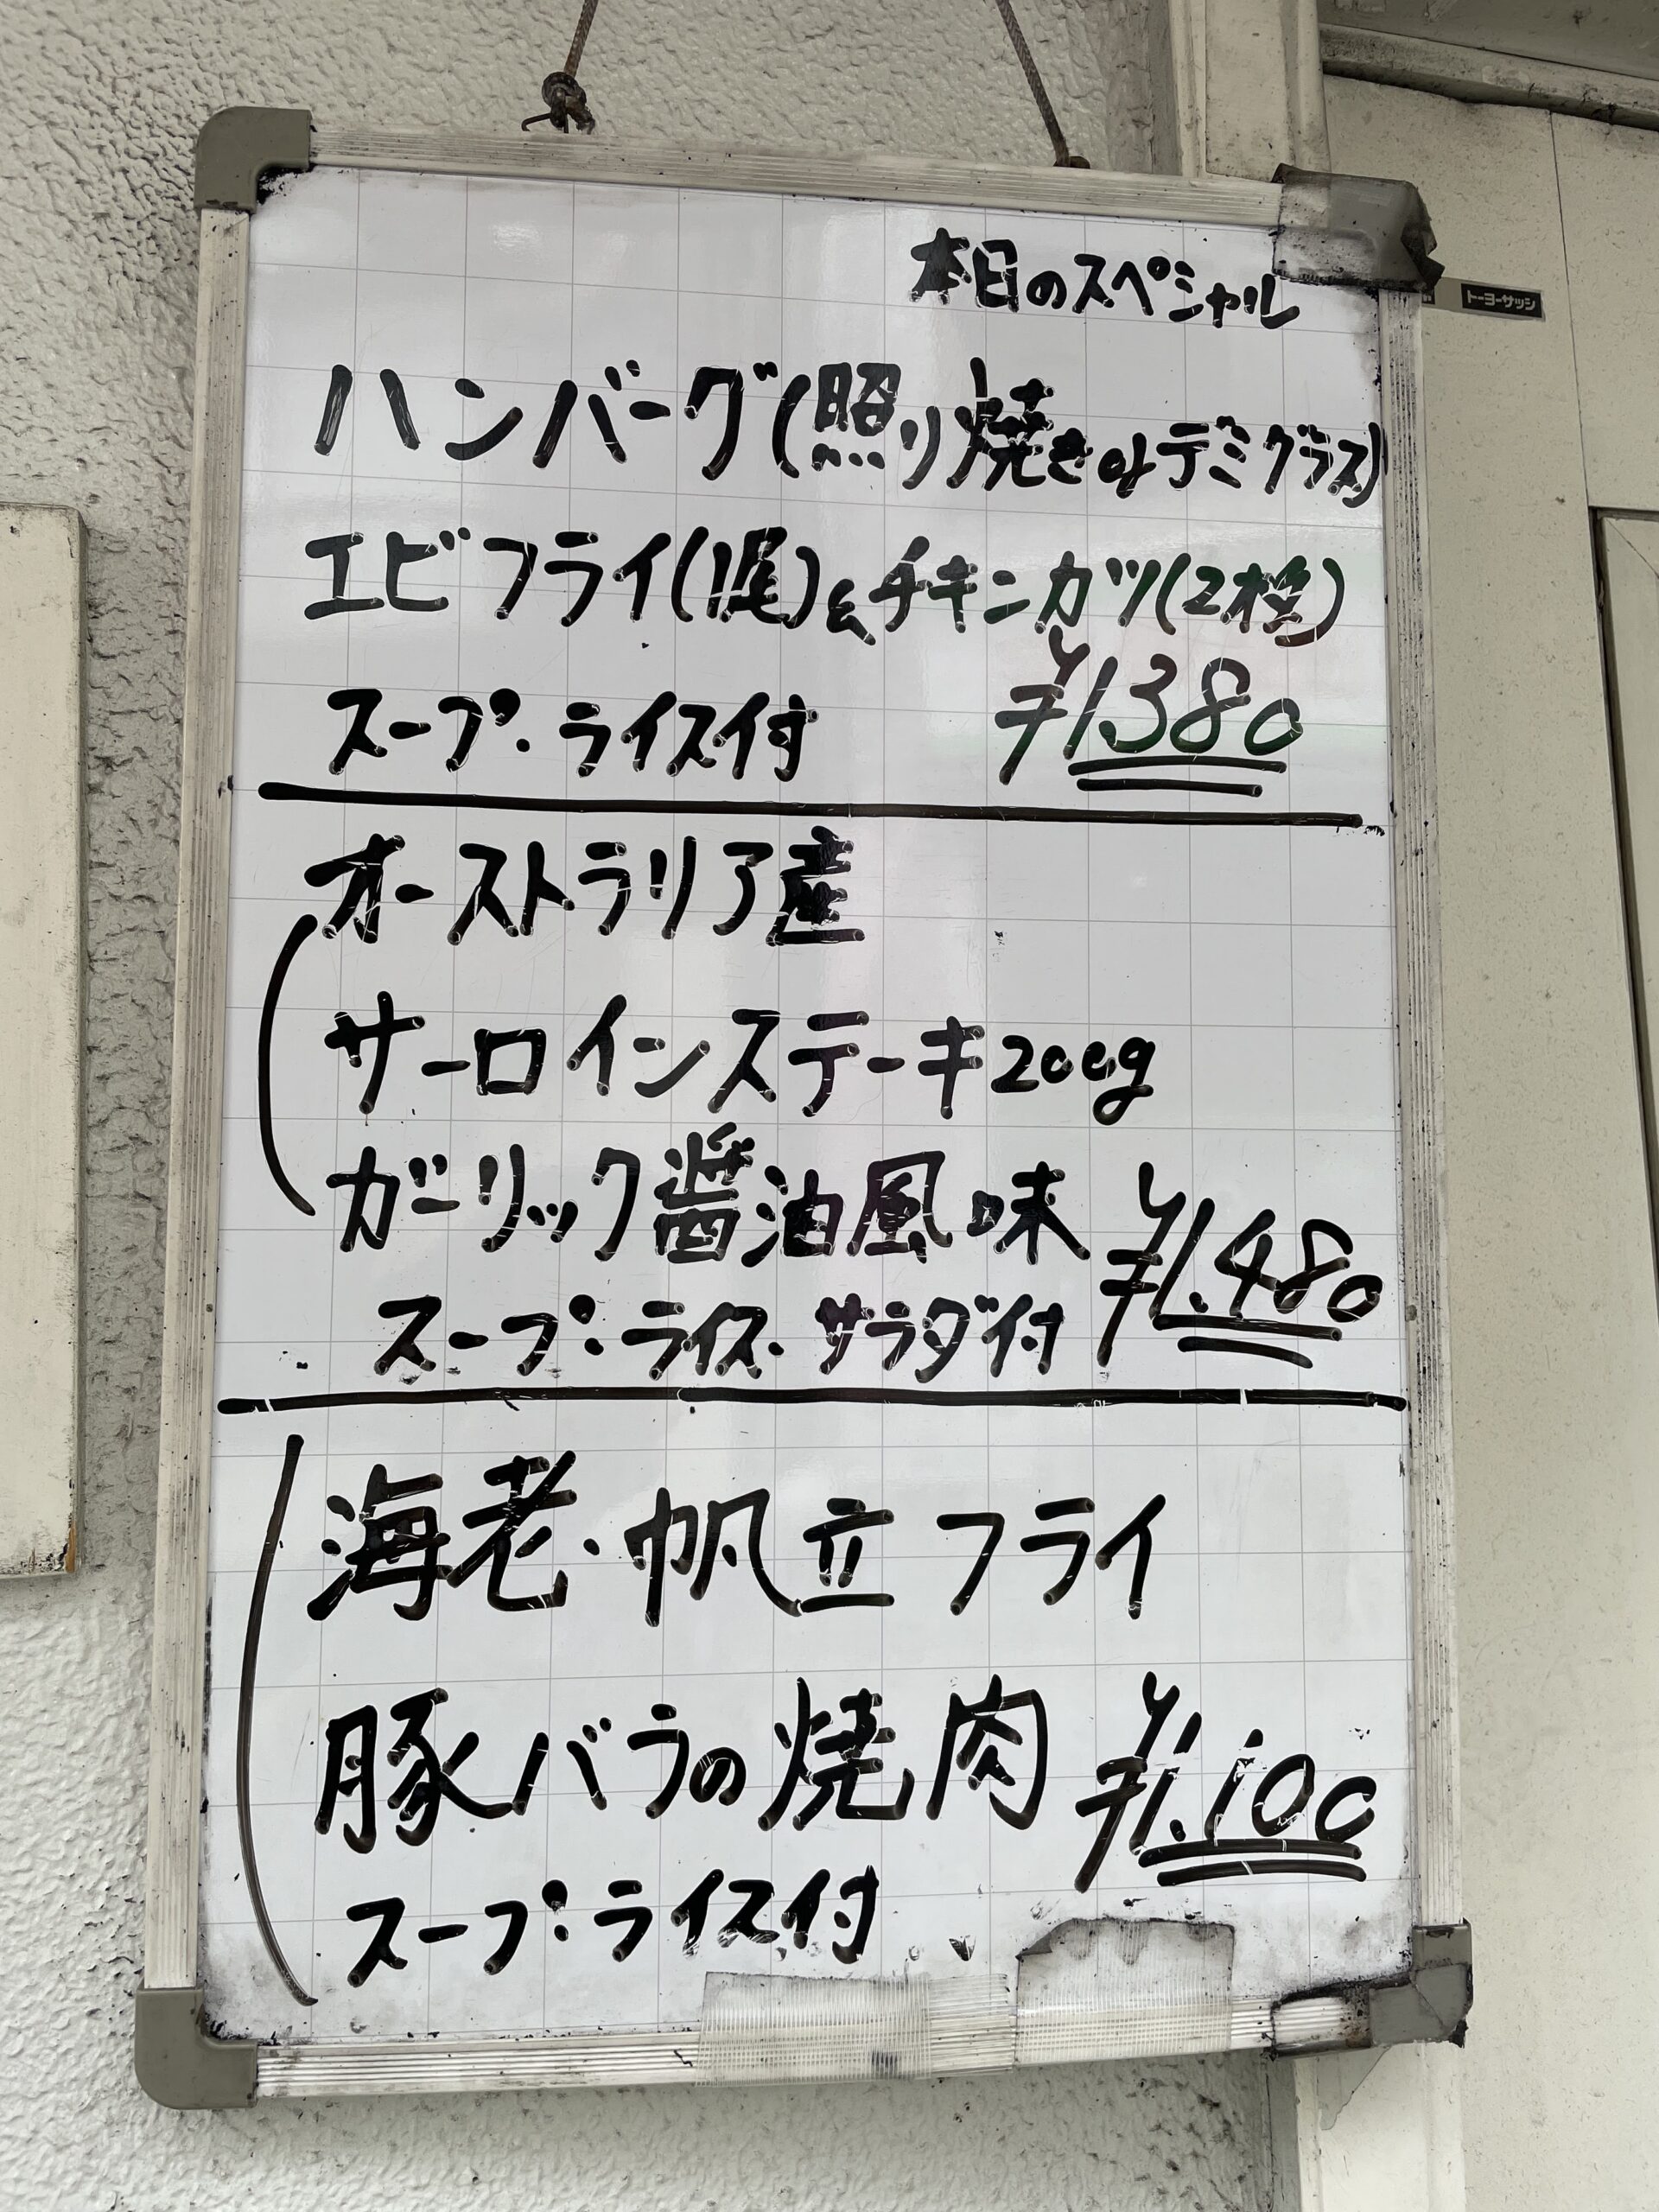 本日のスペシャル
トーヨーサッシ
ハンバーグ(照り焼きorデミグラス)
エビフライ(1尾)&チキンカツ(2枚)
¥1380
スープ・ライス付
オーストラリア産
サーロインステーキ200g
ガーリック醤油風味
¥1,480
スープ・ライス・サラダ付
海老・帆立フライ
豚バラの焼肉 ¥1,100
スープ・ライス付